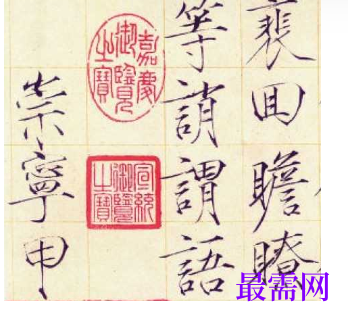 裴回瞻瞭
等誚謂語
嘉慶御覽之寶
宣統御覽之寶
崇寧甲
最需网